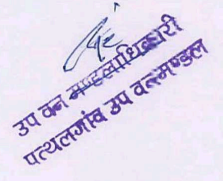 उप वन मण्डलाधिकारी
पत्थलगांव उप वनमण्डल